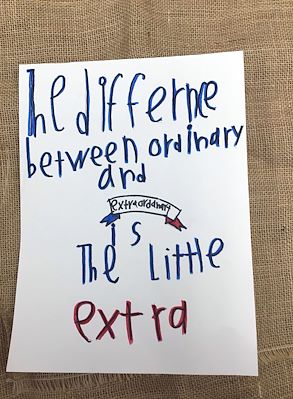 The differnce
between ordinary
and
extraordinary
is
The little
extra